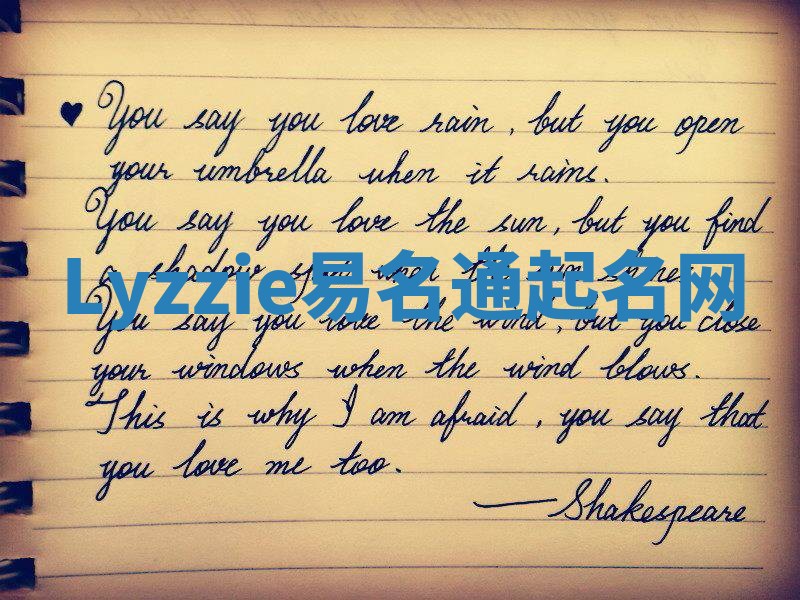 ♥ You say you love rain, but you open
your umbrella when it rains.
You say you love the sun, but you find
a shadow spot when the sun shines.
Lyzzie易名通起名网
You say you love the wind, but you close
your windows when the wind blows.
This is why I am afraid, you say that
you love me too.
—Shakespeare